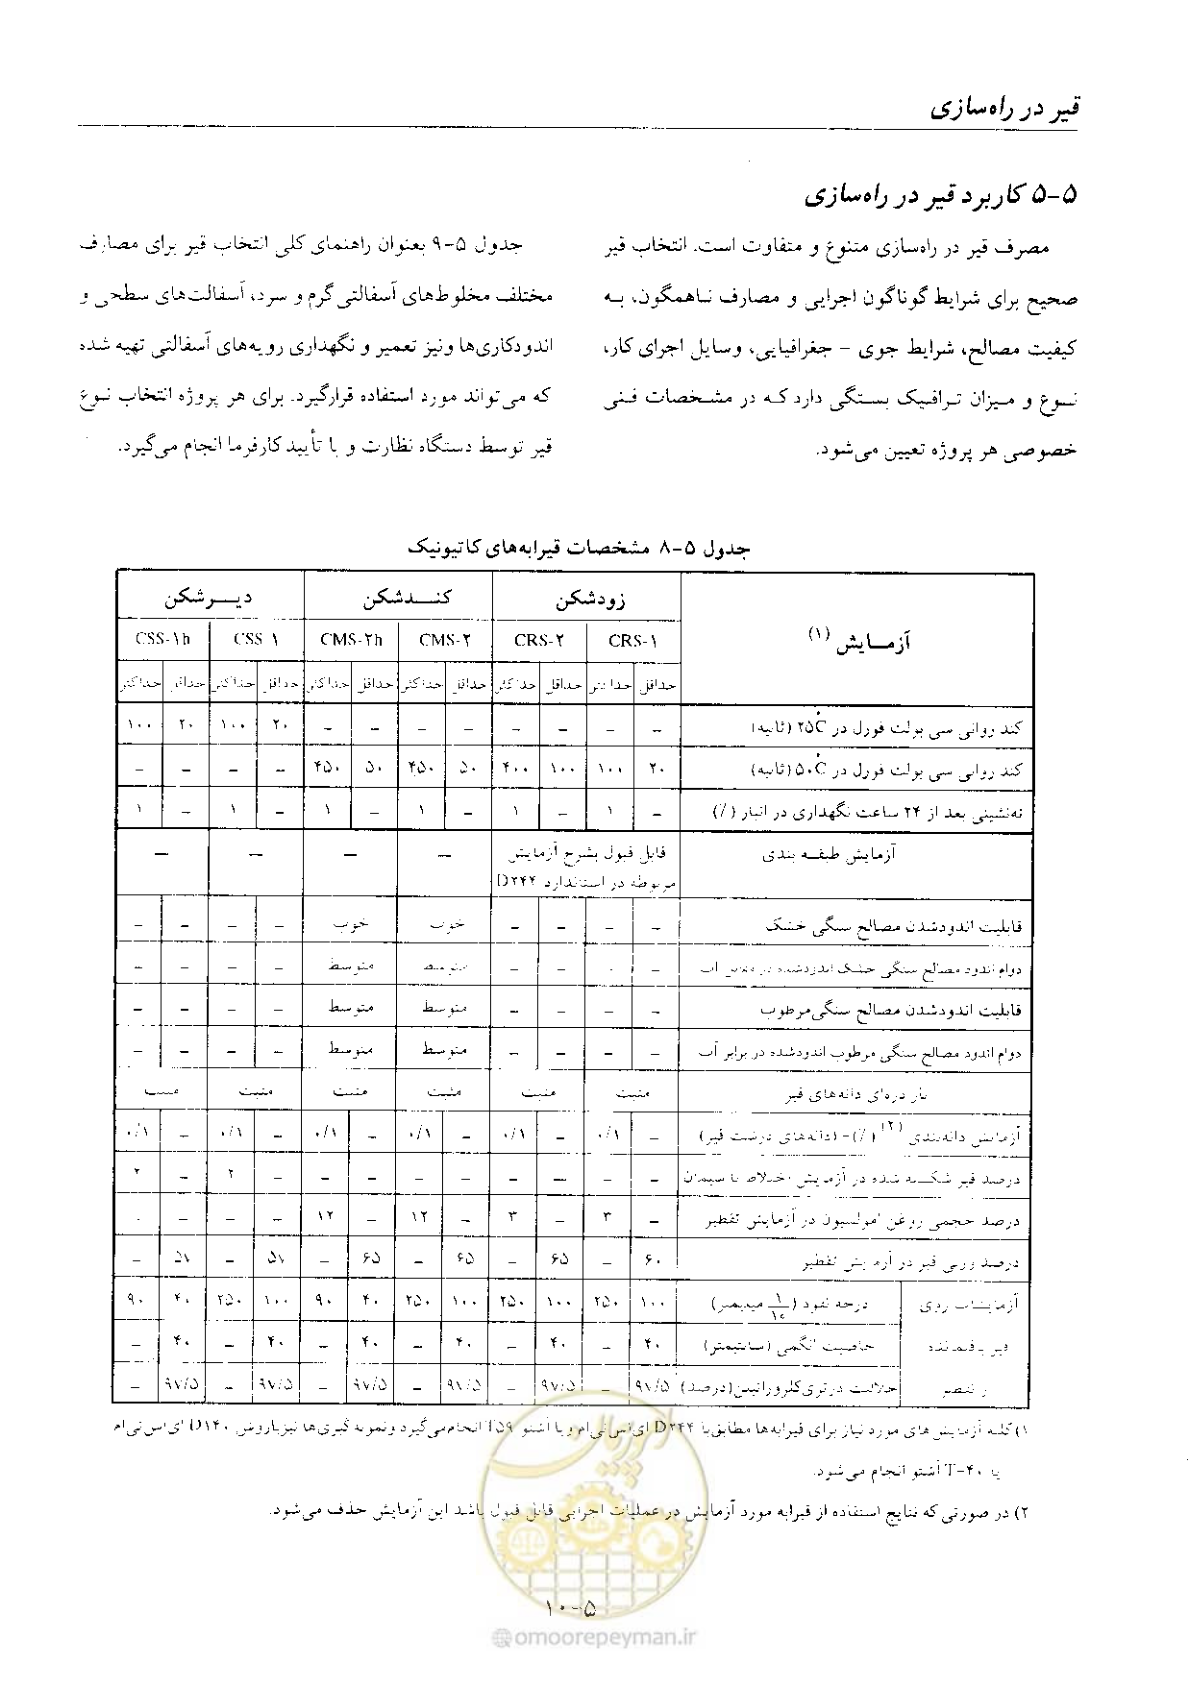 قیر در راه‌سازی
۵-۵ کاربرد قیر در راه‌سازی
مصرف قیر در راه‌سازی متنوع و متفاوت است. انتخاب قیر
صحیح برای شرایط گوناگون اجرایی و مصارف ناهمگون، به
کیفیت مصالح، شرایط جوی - جغرافیایی، وسایل اجرای کار،
نوع و میزان ترافیک بستگی دارد که در مشخصات فنی
خصوصی هر پروژه تعیین می‌شود.
جدول ۵-۹ بعنوان راهنمای کلی انتخاب قیر برای مصارف
مختلف مخلوط‌های آسفالتی گرم و سرد، آسفالت‌های سطحی و
اندودکاری‌ها ونیز تعمیر و نگهداری رویه‌های آسفالتی تهیه شده
که می‌تواند مورد استفاده قرارگیرد. برای هر پروژه انتخاب نوع
قیر توسط دستگاه نظارت و با تأیید کارفرما انجام می‌گیرد.
جدول ۵-۸ مشخصات قیرابه‌های کاتیونیک
آزمـایش (۱) زودشکن کنـدشکن دیـرشکن
CRS-۱ CRS-۲ CMS-۲ CMS-۲h CSS-۱ CSS-۱h
حداقل حداکثر حداقل حداکثر حداقل حداکثر حداقل حداکثر حداقل حداکثر حداقل حداکثر
کند روانی سی بولت فورل در ۲۵°C (ثانیه) – – – – – – – – ۲۰ ۱۰۰ ۲۰ ۱۰۰
کند روانی سی بولت فورل در ۵۰°C (ثانیه) ۲۰ ۱۰۰ ۱۰۰ ۴۰۰ ۵۰ ۴۵۰ ۵۰ ۴۵۰ – – – –
ته‌نشینی بعد از ۲۴ ساعت نگهداری در انبار (٪) – ۱ – ۱ – ۱ – ۱ – ۱ – ۱
آزمایش طبقـه بندی قابل قبول بشرح آزمایش – – – –
مربوطه در استاندارد D۲۴۴
قابلیت اندودشدن مصالح سنگی خشک – – – – خوب خوب – – – –
دوام اندود مصالح سنگی خشک اندودشده در مقابل آب – – – – متوسط متوسط – – – –
قابلیت اندودشدن مصالح سنگی مرطوب – – – – متوسط متوسط – – – –
دوام اندود مصالح سنگی مرطوب اندودشده در برابر آب – – – – متوسط متوسط – – – –
بار ذره‌ای دانه‌های قیر مثبت مثبت مثبت مثبت مثبت مثبت
آزمایش دانه‌بندی (۲) (٪)- (دانه‌های درشت قیر) – ۰/۱ – ۰/۱ – ۰/۱ – ۰/۱ – ۰/۱ – ۰/۱
درصد قیر شکسته شده در آزمایش اختلاط با سیمان – – – – – – – – – ۲ – ۲
درصد حجمی روغن امولسیون در آزمایش تقطیر – ۳ – ۳ – ۱۲ – ۱۲ – – – –
درصد وزنی قیر در آزمایش تقطیر ۶۰ – ۶۵ – ۶۵ – ۶۵ – ۵۷ – ۵۷ –
آزمایشات روی درجه نفوذ (۱/۱۰ میلیمتر) ۱۰۰ ۲۵۰ ۱۰۰ ۲۵۰ ۱۰۰ ۲۵۰ ۴۰ ۹۰ ۱۰۰ ۲۵۰ ۴۰ ۹۰
قیر باقیمانده خاصیت انگمی (سانتیمتر) ۴۰ – ۴۰ – ۴۰ – ۴۰ – ۴۰ – ۴۰ –
از تقطیر حلالیت درتری‌کلرواتیلن (درصد) ۹۷/۵ – ۹۷/۵ – ۹۷/۵ – ۹۷/۵ – ۹۷/۵ – ۹۷/۵ –
۱) کلیه آزمایش‌های مورد نیاز برای قیرابه‌ها مطابق‌با D۲۴۴ ای‌اس‌تی‌ام و یا آشتو T۵۹ انجام‌می‌گیرد ونمونه گیری‌ها نیزباروش D۱۴۰ ای‌اس‌تی‌ام
یا T-۴۰ آشتو انجام می‌شود.
۲) در صورتی که نتایج استفاده از قیرابه مورد آزمایش در عملیات اجرایی قابل قبول باشد این آزمایش حذف می‌شود.
۱۰-۵
امور پیمان
@omoorepeyman.ir